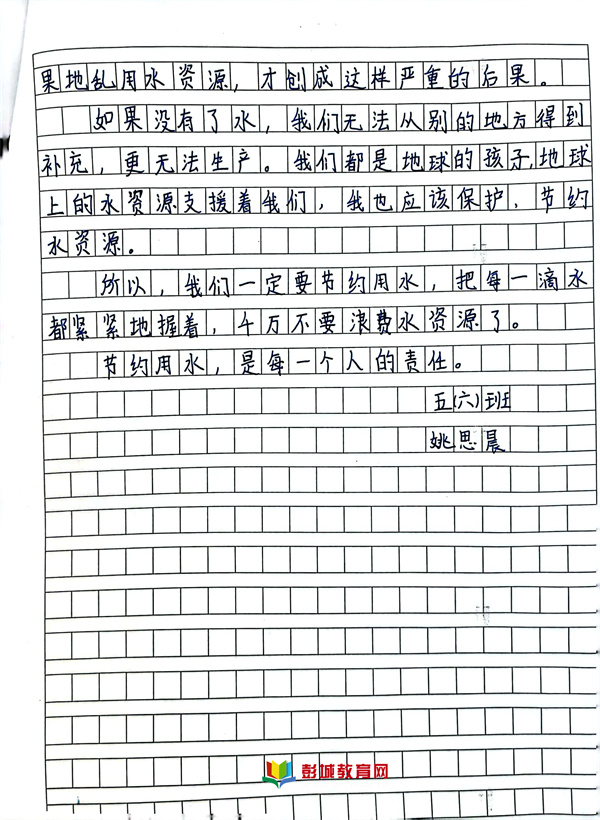 果地乱用水资源，才创成这样严重的后果。
如果没有了水，我们无法从别的地方得到
补充，更无法生产。我们都是地球的孩子，地球
上的水资源支援着我们，我也应该保护、节约
水资源。
所以，我们一定要节约用水，把每一滴水
都紧紧地握着，千万不要浪费水资源了。
节约用水，是每一个人的责任。
五(六)班
姚思晨
彭城教育网